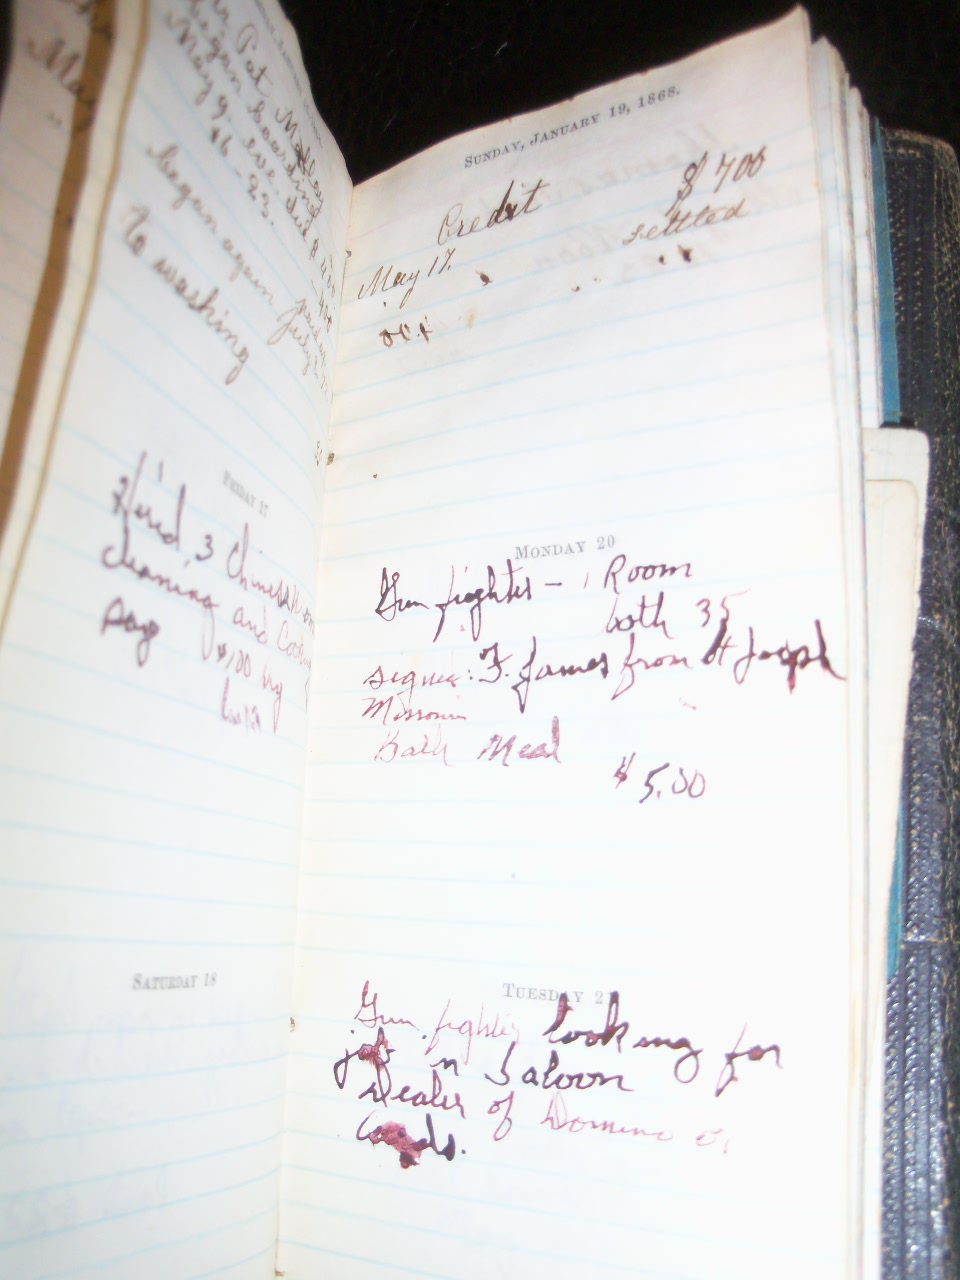 Pat Malloy
began boarding
May 9. eve.
$6 - 23.
began again July
To washing
FRIDAY 17
Hired 3 Chinese
cleaning and
pay $1,00 by
SATURDAY 18
SUNDAY, JANUARY 19, 1868.
Credit $ 700
May 17. settled
oct
MONDAY 20
Gun fighter - 1 Room
both 35
signed: F. James from St Joseph
Missouri
Bath Meal
$5.00
TUESDAY 21
Gun fighter looking for
job in Saloon
Dealer of Domino or
Cards.